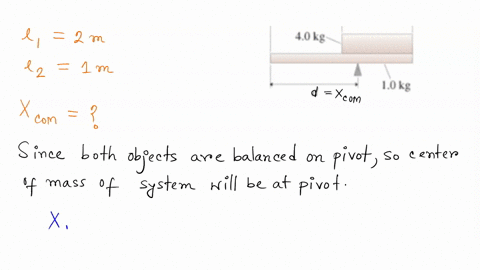 l₁ = 2 m
l₂ = 1 m
X com = ?
4.0 kg
1.0 kg
d = Xcom
Since both objects are balanced on pivot, so center
of mass of system will be at pivot.
X.